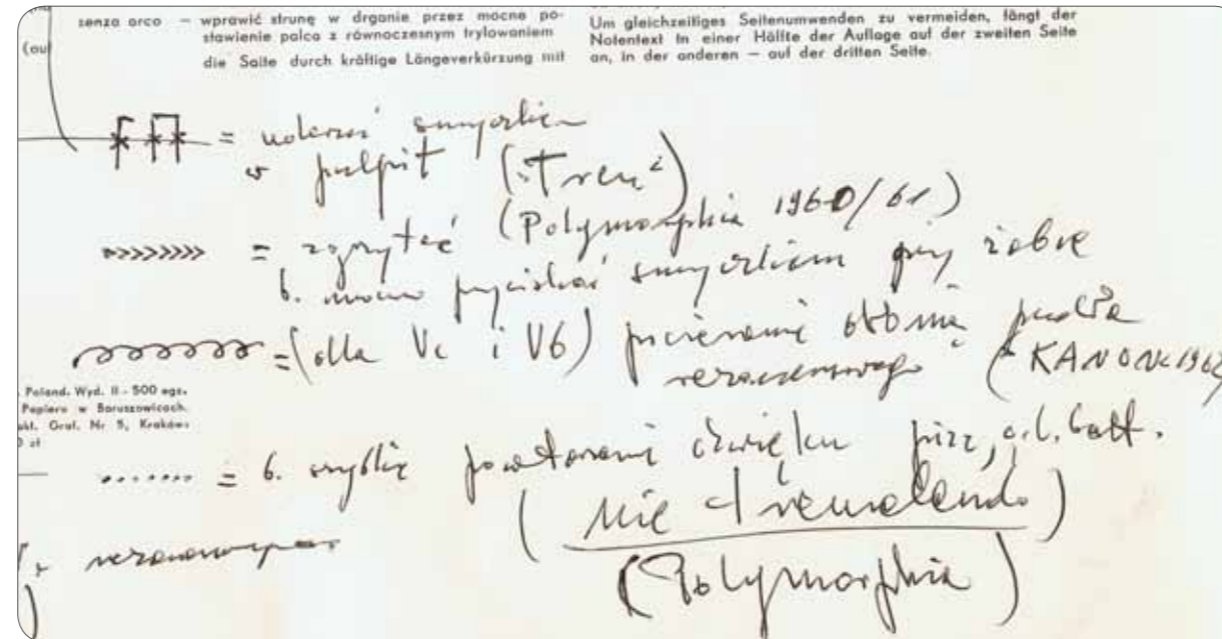 senza arco – wprawić strunę w drganie przez mocne po-
stawienie palca z równoczesnym trylowaniem
die Saite durch kräftige Längeverkürzung mit
Um gleichzeitiges Seitenumwenden zu vermeiden, fängt der
Notentext in einer Hälfte der Auflage auf der zweiten Seite
an, in der anderen – auf der dritten Seite.
(ou
= uderzać smyczkiem
w pulpit ("Tren")
= zgrzytać (Polymorphia 1960/61)
b. mocno przyciskać smyczkiem przy żabce
= (dla Vc i Vb) pocieranie obtonie pudła
rezonansowego (KANON 1962
Poland. Wyd. II - 500 egz.
Papiern w Boruszowicach.
akł. Graf. Nr 5, Kraków
0 zł
= b. szybkie powtarzanie dźwięku pizz, c.l. batt.
(nie tremolando)
(Polymorphia)